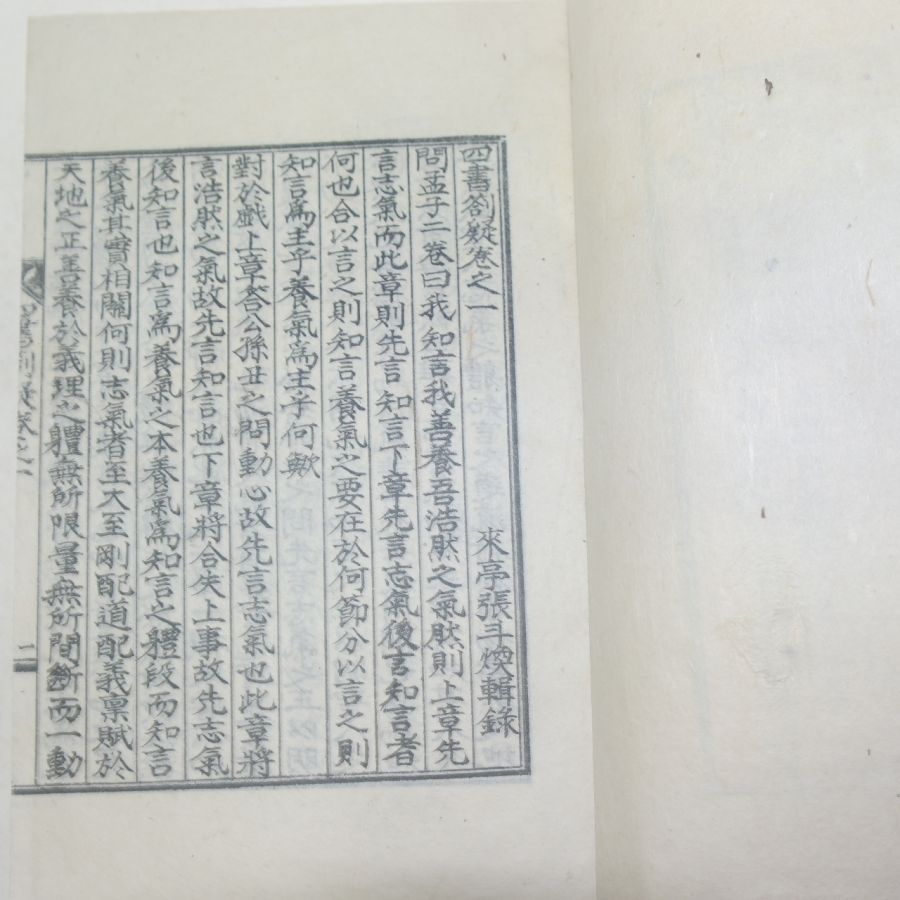 四書劄疑卷之一
來亭張斗煥輯錄
問孟子二卷曰我知言我善養吾浩然之氣然則上章先
言志氣而此章則先言知言下章先言志氣後言知言者
何也合以言之則知言養氣之要在於何節分以言之則
知言爲主乎養氣爲主乎何歟
對於戱上章答公孫丑之問動心故先言志氣也此章將
言浩然之氣故先言知言也下章將合失上事故先志氣
後知言也知言爲養氣之本養氣爲知言之軆段而知言
養氣其實相關何則志氣者至大至剛配道配義稟賦於
天地之正善養於義理之軆無所限量無所間斷而一動
四書劄疑卷之一